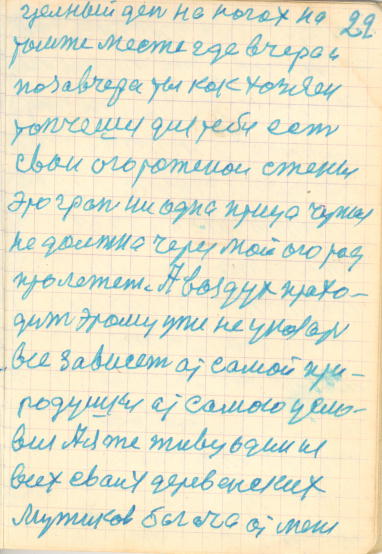 целный ден на ногах на 22
томже месте где вчера и
позавчера ты как хозяен
топчеш для тебя ест
сваи огороженои стены
Это гран ни одна птица чужая
не должна через мой огород
пролетет. А воздух прахо-
дит этому уже не
все зависет от самой при-
родушки от самого усло-
вия Я же живу один из
всех сваих деревенских
мужиков багача от мен